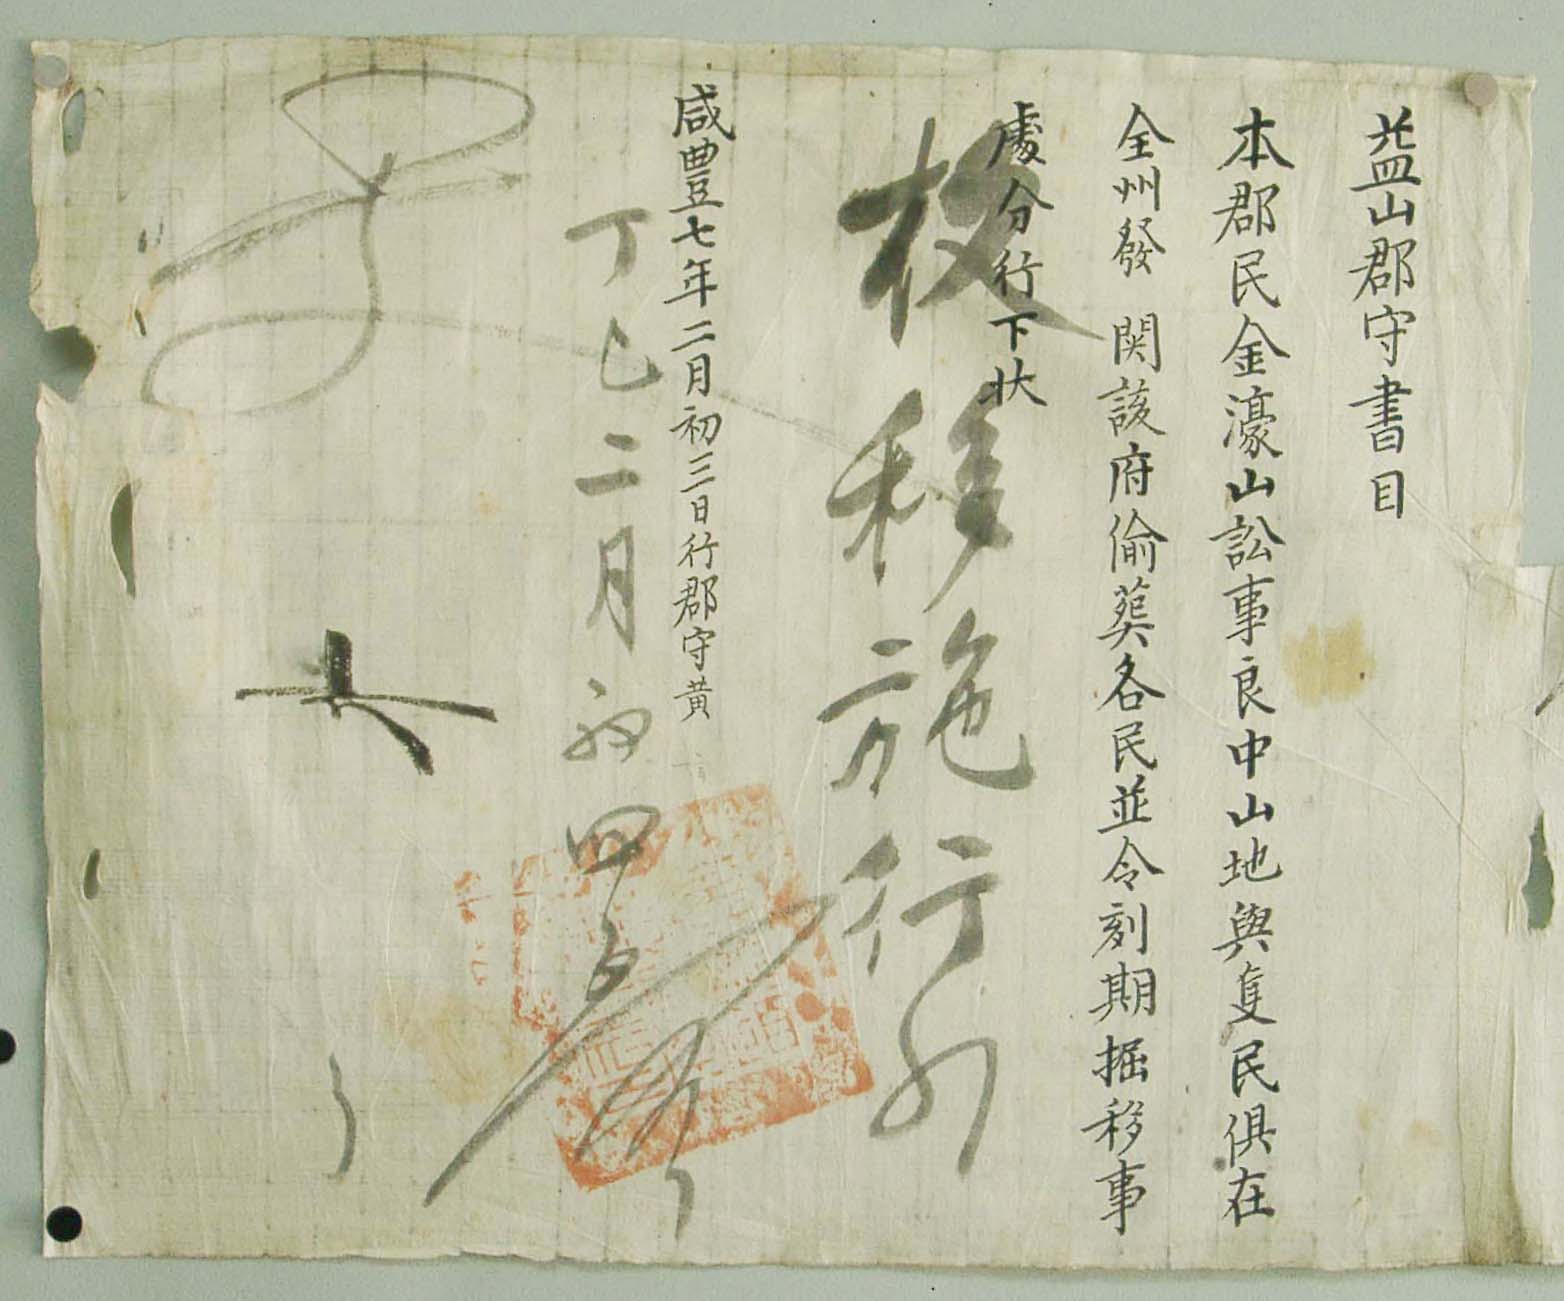 益山郡守書目
本郡民金濠山訟事良中山地與隻民俱在
全州發 関該府偷葬各民並令刻期掘移事
處分行下狀
移施行
咸豐七年二月初三日行郡守黃
丁巳二月初四